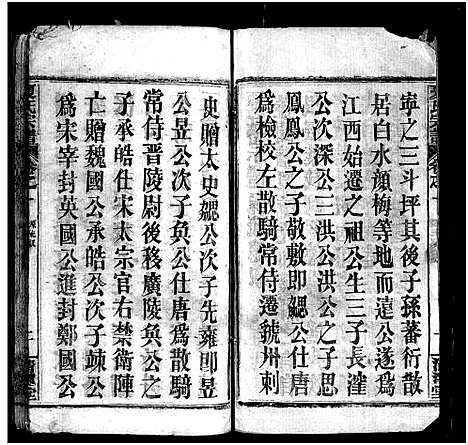 寧之三斗坪其後子孫蕃衍散
居白水顔梅等地而瀛公遂爲
江西始遷之祖公生三子長漥
公次深公三洪公洪公之子愿
鳳鳳公之子敬即勰公仕唐
爲檢校左散騎常侍遷虢州刺
史贈太史勰公次子先雍即昱
公昱公次子奐公仕唐爲散騎
常侍晋陵尉後移廣陵奐公之
子承皓仕宋太宗官右禁衛陣
亡贈魏國公承皓公次子竦公
爲宋宰封英國公進封鄭國公